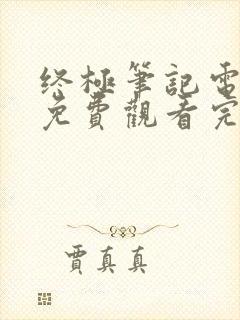 终極筆記電
免費觀看完
賈真真